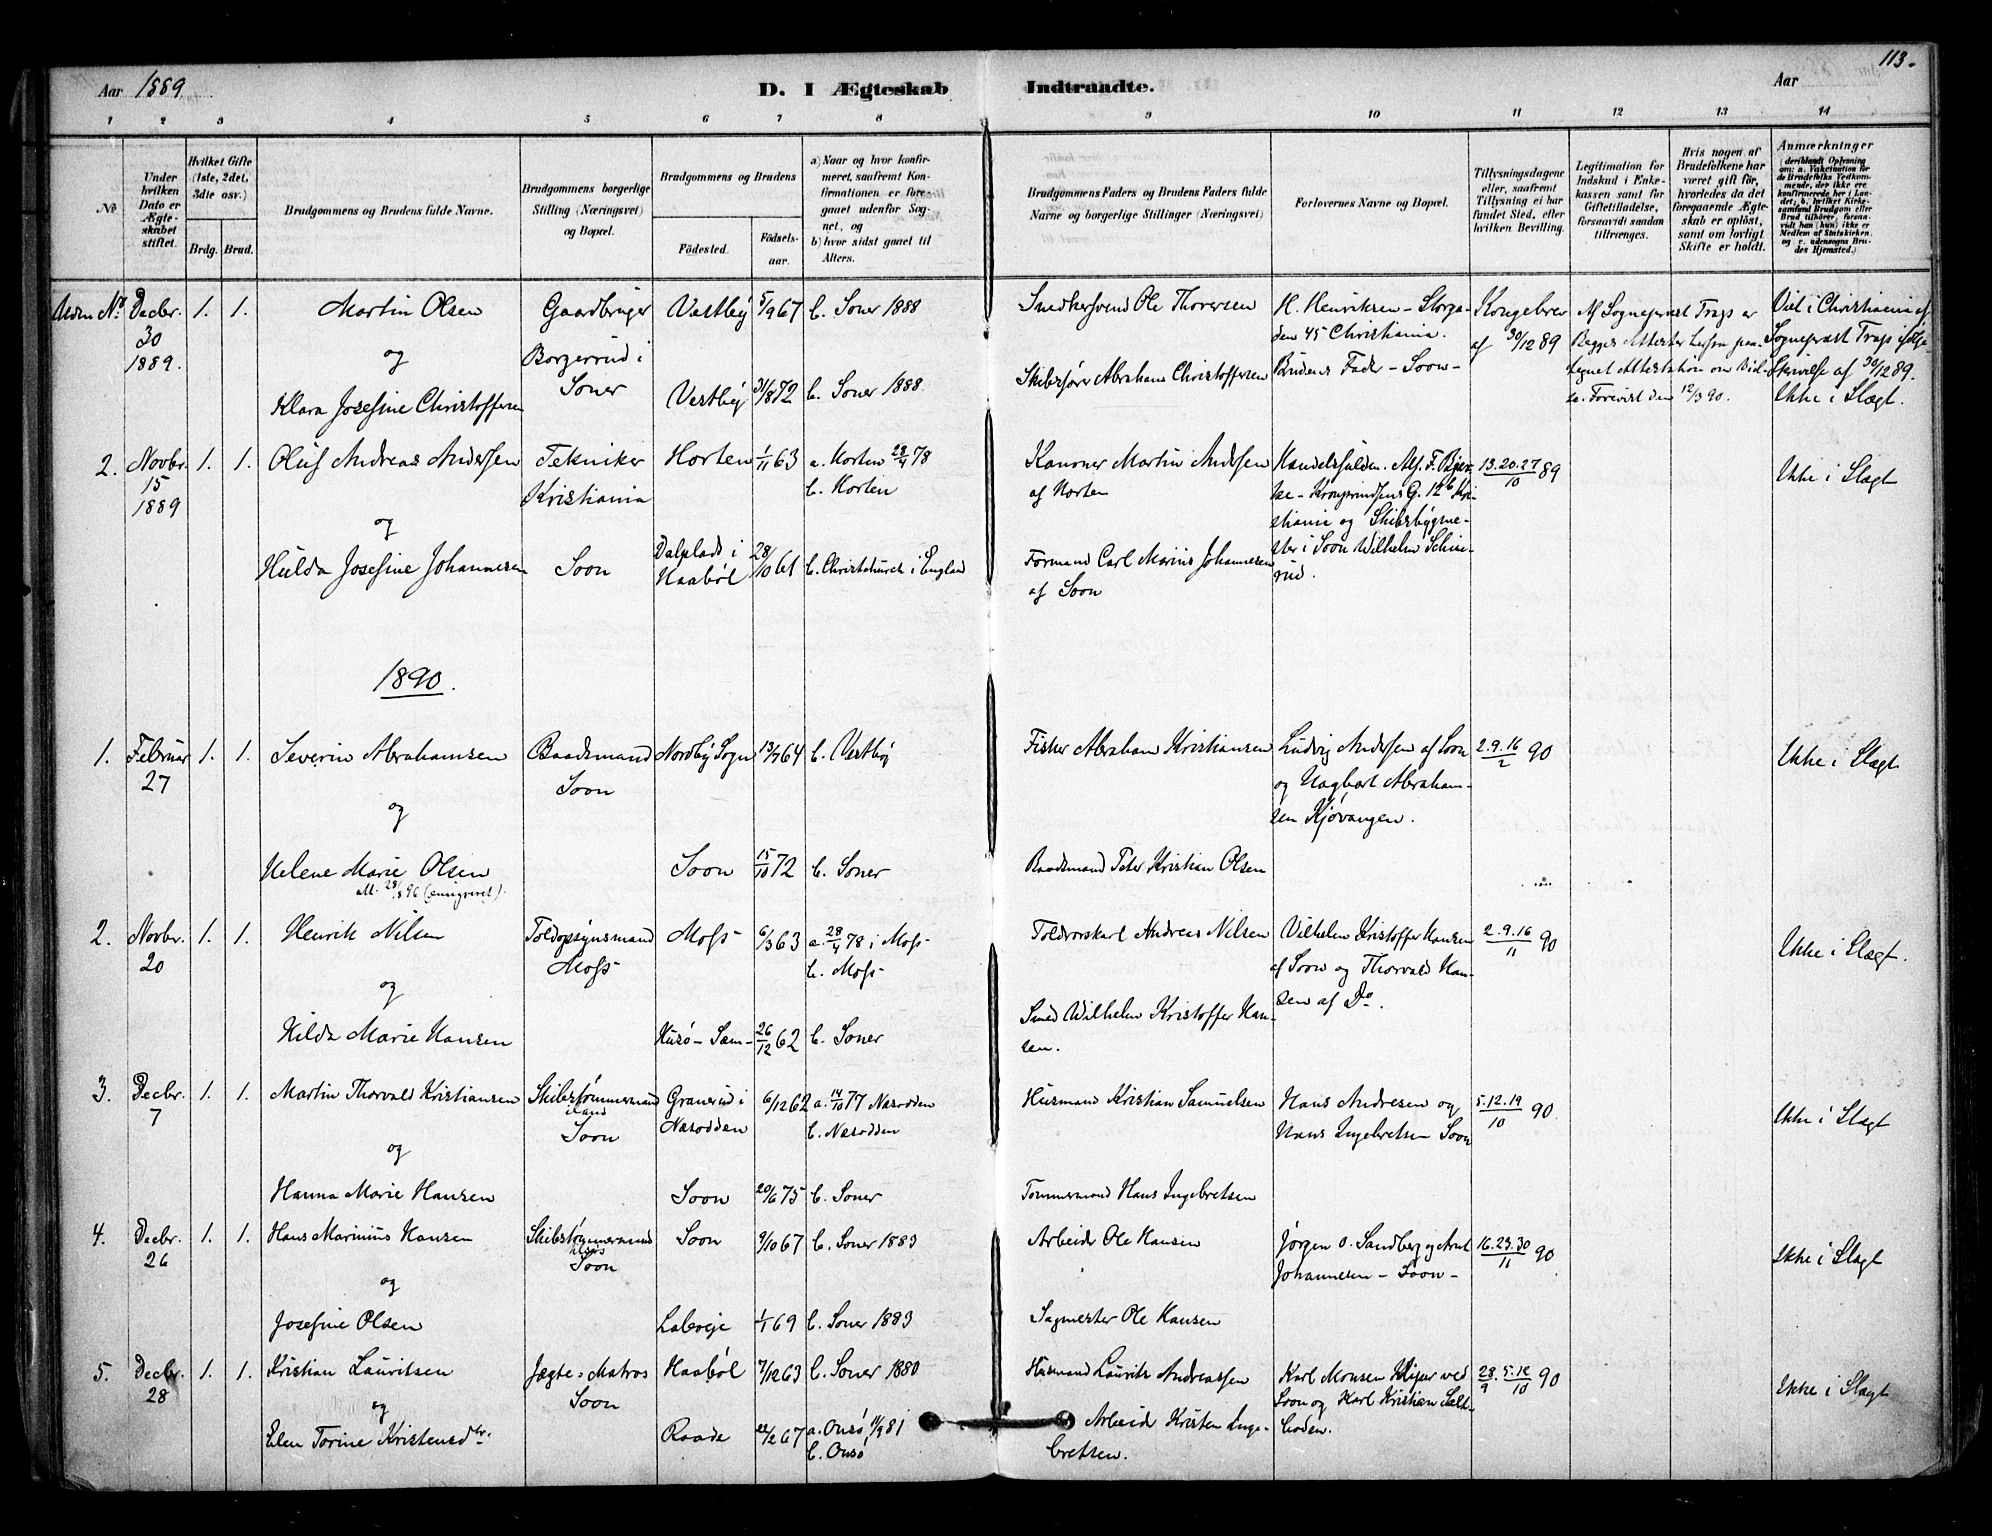 113.
Aar 1889
D. I Ægteskab Indtraadte.
Aar
1 2 3 4 5 6 7 8 9 10 11 12 13 14
No
Under hvilken Dato er Ægteskabet stiftet.
Hvilket Gifte (1ste, 2det, 3die osv.)
Brdg. Brud.
Brudgommens og Brudens fulde Navne.
Brudgommens borgerlige Stilling (Næringsvei) og Bopæl.
Brudgommens og Brudens
Födested. Födselsaar.
a) Naar og hvor konfirmeret, saafremt Konfirmationen er foregaaet udenfor Sognet, og
b) hvor sidst gaaet til Alters.
Brudgommens Faders og Brudens Faders fulde Navne og borgerlige Stillinger (Næringsvei)
Forlovernes Navne og Bopæl.
Tillysningsdagene eller, saafremt Tillysning ei har fundet Sted, efter hvilken Bevilling.
Legitimation for Indskud i Enkekassen samt for Giftetilladelse, forsaavidt saadan tiltrænges.
Hvis nogen af Brudefolkene har været gift för, hvorledes da det foregaaende Ægteskab er oplöst, samt om lovligt Skifte er holdt.
Anmærkninger
Uden No Decbr. 30 1889. 1. 1. Martin Olsen Gaardbruger Borgerrud i Soner Vestby 5/9 67 b. Soner 1888 Snedkersvend Ole Thoresen H. Henriksen - Storgaden 45 Christiania. Kongebrev af 30/12 89 Af Sognepræst Trags er Begges Attester herpaa
Viet i Christiania af Sognepræst Trags ifølge Skrivelse af 30/12 89. Ikke i Slægt.
og
Klara Josefine Christoffersen Vestby 31/8 72 b. Soner 1888. Skibsfører Abraham Christoffersen Brudens Fader - Soon - tegnet Attestation om Vielse. Forevist den 12/3 90.
2. Novbr. 15 1889 1. 1. Oluf Andreas Andersen Tekniker Kristiania Horten 1/11 63 a. Horten 28/4 78 b. Horten Kanoner Martin Andersen af Horten Handelsfuldm. Alf. F. Bjerke - Kronprindsens G. 12 b Kristiania og Skibsbygmester i Soon Wilhelm Schinrud. 13.20.27/10 89 Ikke i Slægt
og
Hulda Josefine Johannesen Soon Dalplads i Haabøl 28/10 61 b. Christchurch i England Formand Carl Marius Johannesen af Soon
1890.
1. Februar 27 1. 1. Severin Abrahamsen Baadsmand Soon Nordby Sogn 13/7 64 b. Vestby Fisker Abraham Kristiansen Ludvig Andersen af Soon og Hagbart Abrahamsen Kjøvangen. 2.9.16/2 90 Ikke i Slægt
og
Helene Marie Olsen Soon 15/10 72 b. Soner Baadsmand Peter Kristian Olsen
att. 28/8 96 (emigreret).
2. Novbr. 20 1. 1. Henrik Nilsen Toldopsynsmand Moss - Moss - 6/3 63 a. 28/4 78 i Moss - b. Moss - Toldvorskarl Andreas Nilsen Vilhelm Kristoffer Hansen af Soon og Thorvald Hansen af Do. 2.9.16/11 90 Ikke i Slægt.
og
Hilda Marie Hansen Husø - Sæm - 26/12 62 b. Soner Smed Wilhelm Kristoffer Hansen.
3. Decbr. 7 1. 1. Martin Thorvald Kristiansen Skibstømmermand Soon Granerud i Næsodden 6/12 62 a. 14/10 77 Næsodden b. Næsodden Husmand Kristian Samuelsen Hans Andresen og Hans Ingebretsen Soon 5.12.19/10 90 Ikke i Slægt
og
Hanna Marie Hansen Soon 20/6 75 b. Soner Tømmermand Hans Ingebretsen
4. Decbr. 26 1. 1. Hans Marinius Hansen Skibstømmermand Soon Soon 9/10 67 b. Soner 1883 Arbeider Ole Hansen Jørgen O. Sandberg og Arnt Johannesen - Soon - 16.23.30/11 90 Ikke i Slægt
og
Josefine Olsen Labveje 1/1 69 b. Soner 1883 Sagmester Ole Hansen
5. Decbr. 28 1. 1. Kristian Lauritsen Jægte-Matros Soon Haabøl 7/12 63 b. Soner 1880 Husmand Laurits Andreassen Karl Monsen Klijar ved Soon og Karl Kristian Saltboden. 28/9. 5.12/10 90 Ikke i Slægt
og
Elen Torine Kristensdtr. Raade 22/12 67 a. Onsø 11/9 81 b. Onsø Arbeid Kristen Ingebretsen.